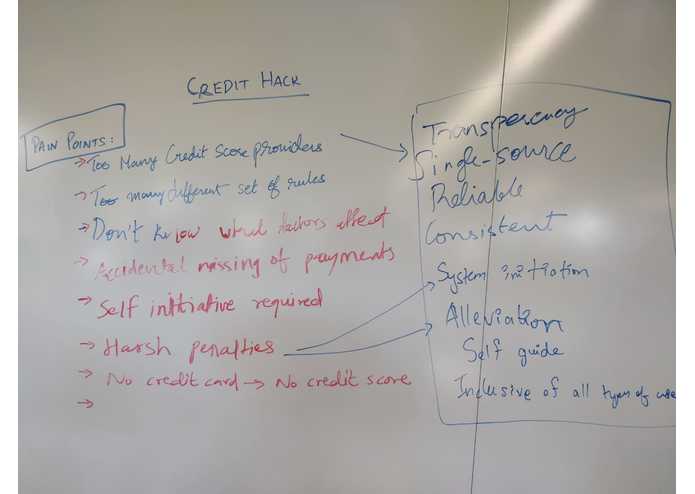 CREDIT HACK
PAIN POINTS:
→ Too Many Credit Score providers
→ Too many different set of rules
→ Don't know what factors affect
→ Accidental missing of payments
→ Self initiative required
→ Harsh penalties
→ No credit card → No credit score
→
Transperency
Single-source
Reliable
Consistent
System initiation
Alleviation
Self guide
Inclusive of all types of use